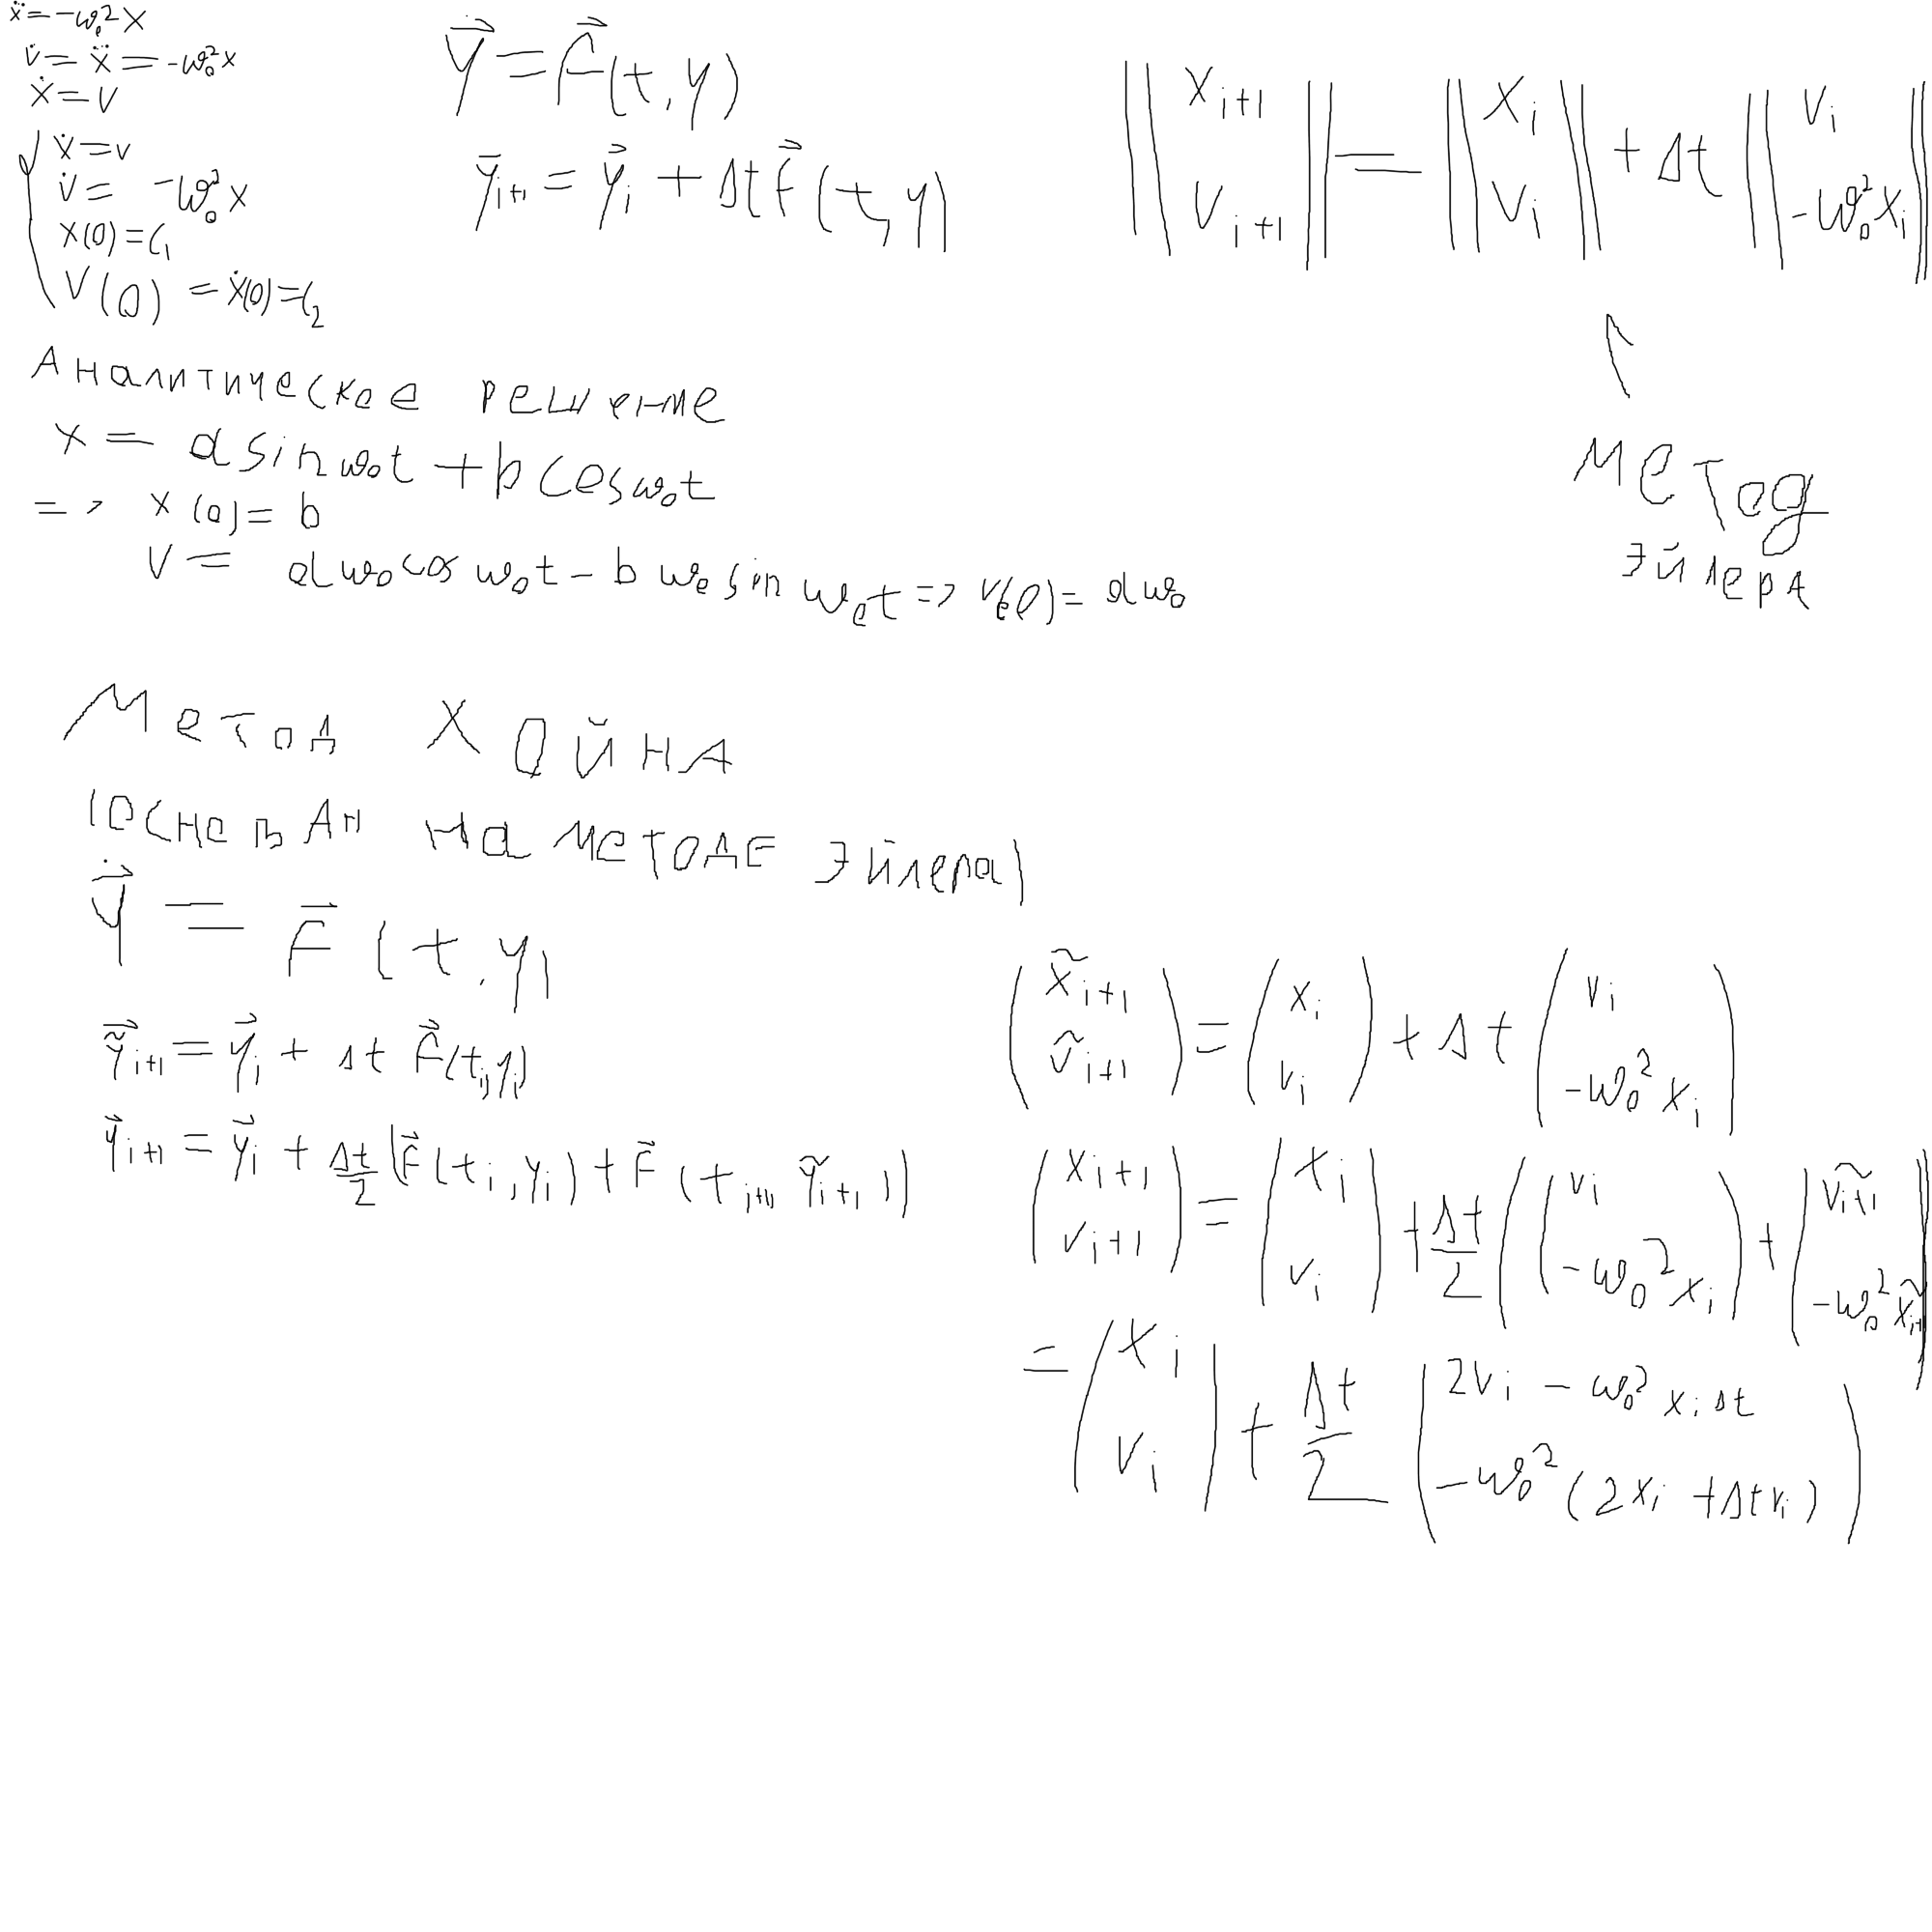 ẍ = -ω₀²x
v̇ = ẍ = -ω₀²x
ẋ = v
{ ẋ = v
v̇ = -ω₀²x
x(0) = C₁
v(0) = ẋ(0) = C₂
Y⃗̇ = F⃗(t, y)
y⃗ᵢ₊₁ = y⃗ᵢ + Δt F⃗(t, y)
‖ xᵢ₊₁ ‖ = ‖ xᵢ ‖ + Δt ‖ vᵢ ‖
‖ vᵢ₊₁ ‖ ‖ vᵢ ‖ ‖ -ω₀²xᵢ ‖
метод
эйлера
Аналитическое решение
x = a sin ω₀t + b cos ω₀t
=> x(0) = b
v = aω₀ cos ω₀t - bω₀ sin ω₀t => v(0) = aω₀
Метод Хойна
(основан на методе эйлера)
y⃗̇ = F⃗(t, y)
ỹ⃗ᵢ₊₁ = y⃗ᵢ + Δt F⃗(tᵢ, yᵢ)
y⃗ᵢ₊₁ = y⃗ᵢ + Δt/2 (F⃗(tᵢ, yᵢ) + F⃗(tᵢ₊₁, ỹᵢ₊₁))
( x̃ᵢ₊₁ ) = ( xᵢ ) + Δt ( vᵢ )
( ṽᵢ₊₁ ) ( vᵢ ) ( -ω₀²xᵢ )
( xᵢ₊₁ ) = ( xᵢ ) + Δt/2 (( vᵢ ) + ( ṽᵢ₊₁ ))
( vᵢ₊₁ ) ( vᵢ ) (( -ω₀²xᵢ ) ( -ω₀²x̃ᵢ₊₁ ))
= ( xᵢ ) + Δt/2 ( 2vᵢ - ω₀²xᵢΔt )
( vᵢ ) ( -ω₀²(2xᵢ + Δtvᵢ) )